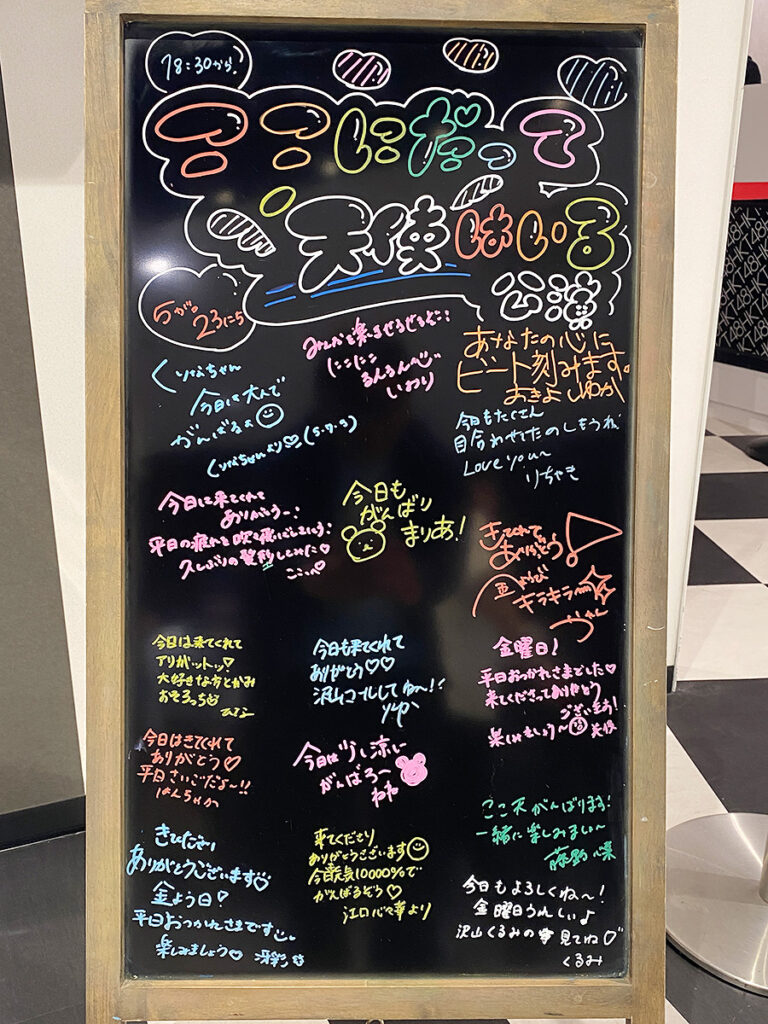 18:30から.
ここにだって
天使はいる
公演
5がつ
23にち
くりなちゃん
今日は
がんばるよ
あなたの心に
ビート刻みます。
おきよ
今日もたくさん
目合わせてたのしもうね
Love you〜
りちゃき
にこにこ
るんるん
いおり
今日は来てくれて
ありがとうー!
平日の疲れを吹き飛ばしましょう!
久しぶりの髪型
ここぺ
今日も
がんばり
まりあ!
きてくれて
ありがとう!
キラキラ
今日は来てくれて
アリがットッ!
大好きな方とがみ
おそろっち
今日も来てくれて
ありがとう♡♡
沢山コールしてねー!
りゆか
金曜日!
平日おつかれさまでした♡
来てくださってありがとう
ございます!
楽しみましょう〜
今日はきてくれて
ありがとう♡
平日さいごだよ〜!!
はんちゃか
今日は少し涼しい
がんばろ〜
ねね
ここ天がんばります!
一緒に楽しみましょ〜
きてくださり
ありがとうございます♡
金よう日!
平日おつかれさまです
楽しみましょう♡ 冴彩
来てくださり
ありがとうございます
今日元気10000%で
がんばるぞう♡
江口心々華より
今日もよろしくね〜!
金曜日うれしい♪
沢山くるみの 見てね♡
くるみ